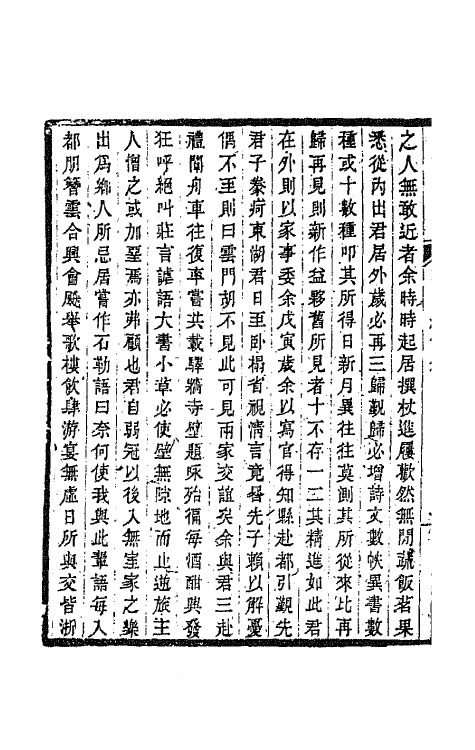 之人無敢近者余時時起居撰杖進屨歡然無閒蔬飯茗果
悉從內出君居外歲必再三歸覲歸必增詩文數帙異書數
種或十數種叩其所得日新月異往往莫測其所從來比再
歸再見則新作益夥舊所見者十不存一二其精進如此君
在外則以家事委余戊寅歲余以寫官得知縣赴都引觀先
君子養疴東湖君日至臥榻省視情言竟晷先子賴以解憂
偶不至則曰雲門胡不見此可見兩家交誼矣余與君三赴
禮闈舟車往復率嘗共載驛牆寺壁題咏殆徧每酒酣興發
狂呼絕叫莊言謔語大書小草必使壁無隙地而止逆旅主
人憎之或加堊焉亦弗顧也君自弱冠以後入無室家之樂
出爲鄉人所忌居嘗作石勒語曰奈何使我與此輩語每入
都朋簪雲合興會飈舉歌樓飲肆游宴無虛日所與交皆浙